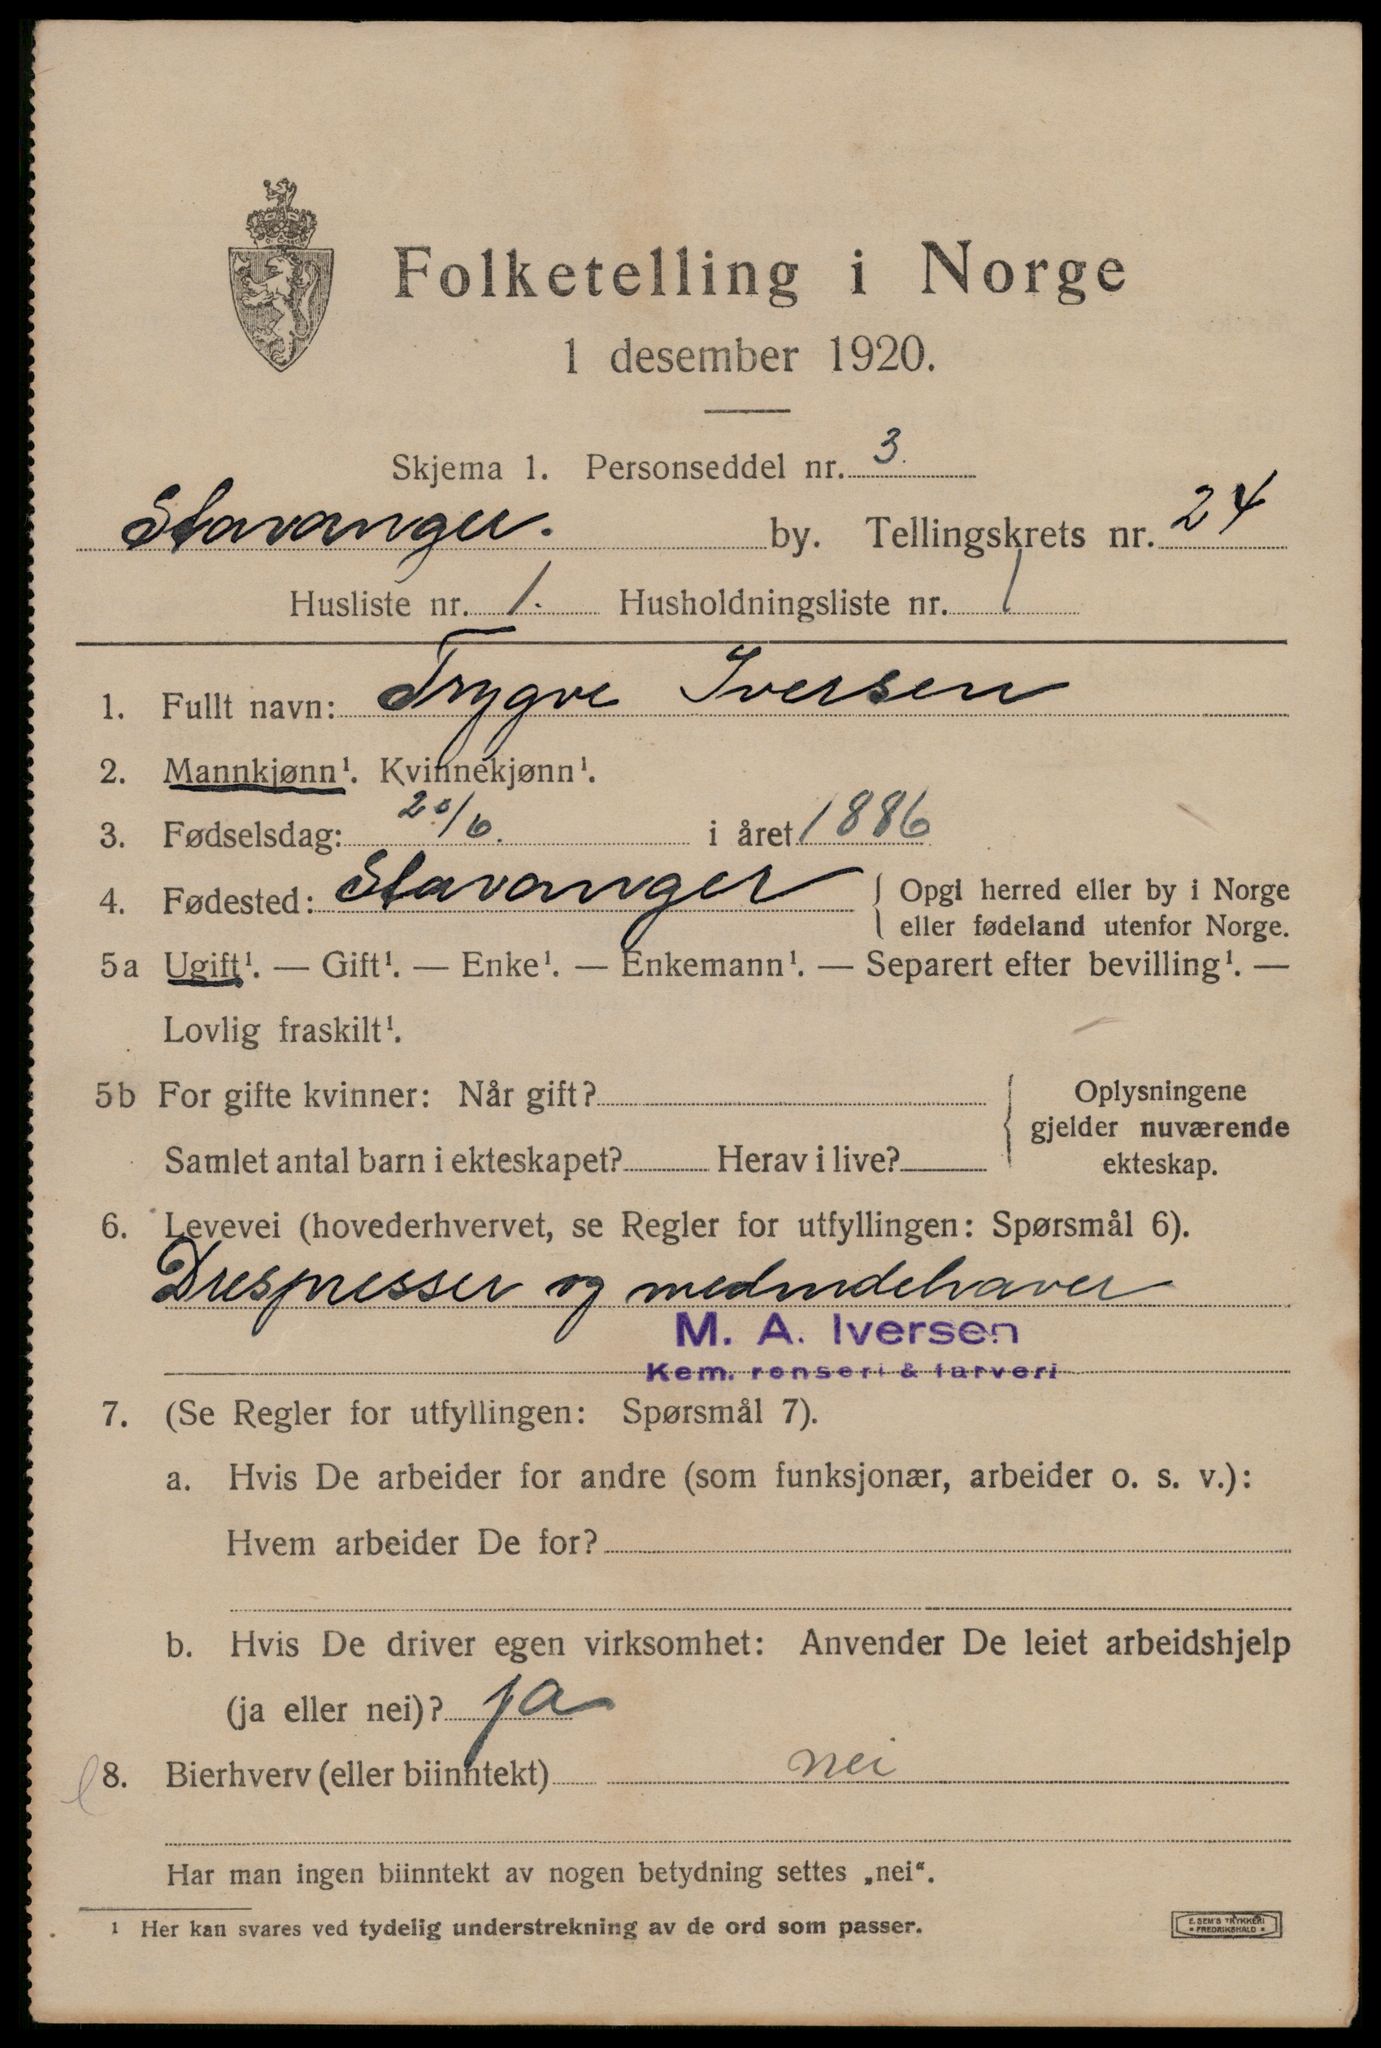 Folketelling i Norge
1 desember 1920.
Skjema 1. Personseddel nr. 3.
Stavanger. by. Tellingskrets nr. 24
Husliste nr. 1. Husholdningsliste nr. 1
1. Fullt navn: Trygve Iversen
2. Mannkjønn¹. Kvinnekjønn¹.
3. Fødselsdag: 20/6. i året 1886
4. Fødested: Stavanger { Opgi herred eller by i Norge
eller fødeland utenfor Norge.
5a Ugift¹. — Gift¹. — Enke¹. — Enkemann¹. — Separert efter bevilling¹. —
Lovlig fraskilt¹.
5b For gifte kvinner: Når gift? { Oplysningene
gjelder nuværende
Samlet antal barn i ekteskapet? Herav i live? ekteskap.
6. Levevei (hovederhvervet, se Regler for utfyllingen: Spørsmål 6).
Drespresser og medindehaver
M. A. Iversen
Kem. renseri & farveri
7. (Se Regler for utfyllingen: Spørsmål 7).
a. Hvis De arbeider for andre (som funksjonær, arbeider o. s. v.):
Hvem arbeider De for?
b. Hvis De driver egen virksomhet: Anvender De leiet arbeidshjelp
(ja eller nei)? ja
8. Bierhverv (eller biinntekt) nei
Har man ingen biinntekt av nogen betydning settes „nei“.
¹ Her kan svares ved tydelig understrekning av de ord som passer.
E. SEM'S TRYKKERI
FREDRIKSHALD